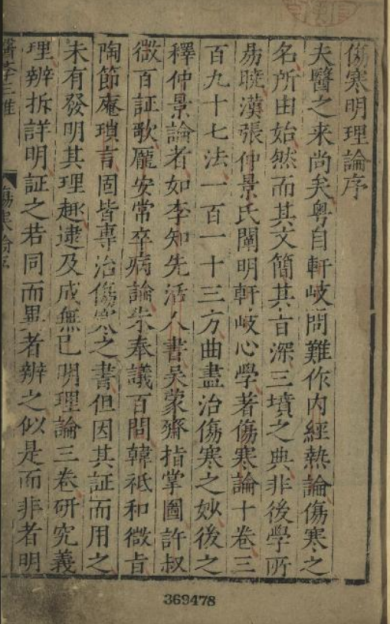 傷寒明理論序
夫醫之来尚矣粤自軒岐問難作内經熱論傷寒之
名所由始然而其文簡其旨深三墳之典非後學所
易曉漢張仲景氏闡明軒岐心學著傷寒論十卷三
百九十七法一百一十三方曲盡治傷寒之妙後之
釋仲景論者如李知先活人書吴蒙齋指掌圖許叔
微百証歌龐安常卒病論朱奉議百問韓祗和微旨
陶節庵瑣言固皆專治傷寒之書但因其証而用之
未有發明其理趣逮及成無已明理論三卷研究義
理辨拆詳明証之若同而異者辨之似是而非者明
369478